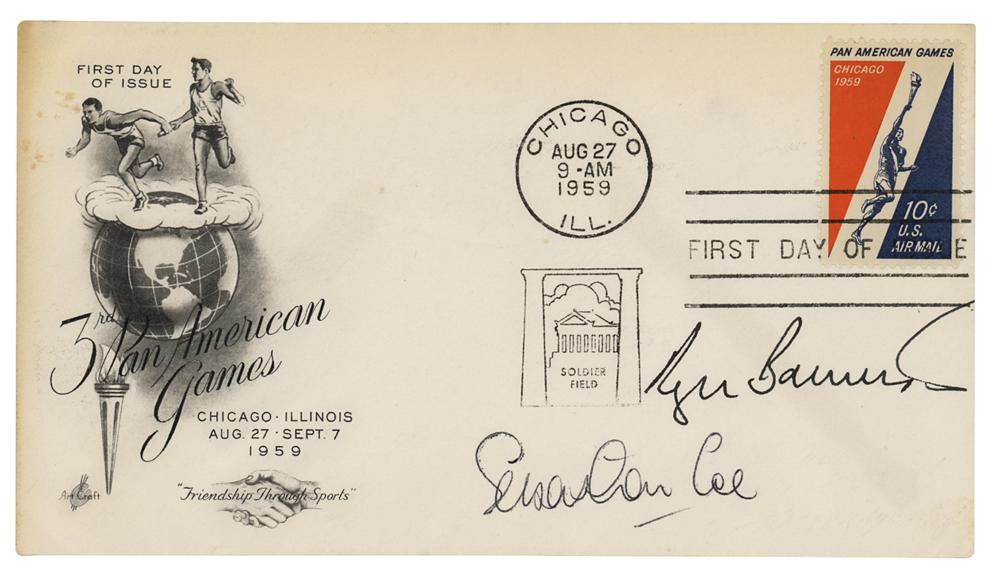 FIRST DAY
OF ISSUE
3rd Pan American
Games
CHICAGO · ILLINOIS
AUG. 27 · SEPT. 7
1959
Art Craft
"Friendship Through Sports"
CHICAGO
AUG 27
9-AM
1959
ILL.
PAN AMERICAN GAMES
CHICAGO
1959
10¢
U.S.
AIR MAIL
FIRST DAY OF E
SOLDIER
FIELD
Coe